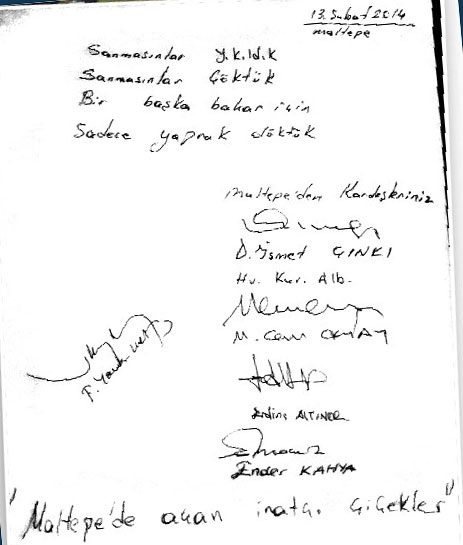 13. Şubat 2014
maltepe
Sanmasınlar Yıkıldık
Sanmasınlar Çöktük
Bir başka bahar için
Sadece yaprak döktük
maltepe'den Kardeşleriniz
D. İsmet ÇINKI
Hv. Kur. Alb.
M. Cem OKYAY
Erdinç ALTINER
Ender KAHYA
F.
"Maltepe'de açan inatçı Çiçekler"